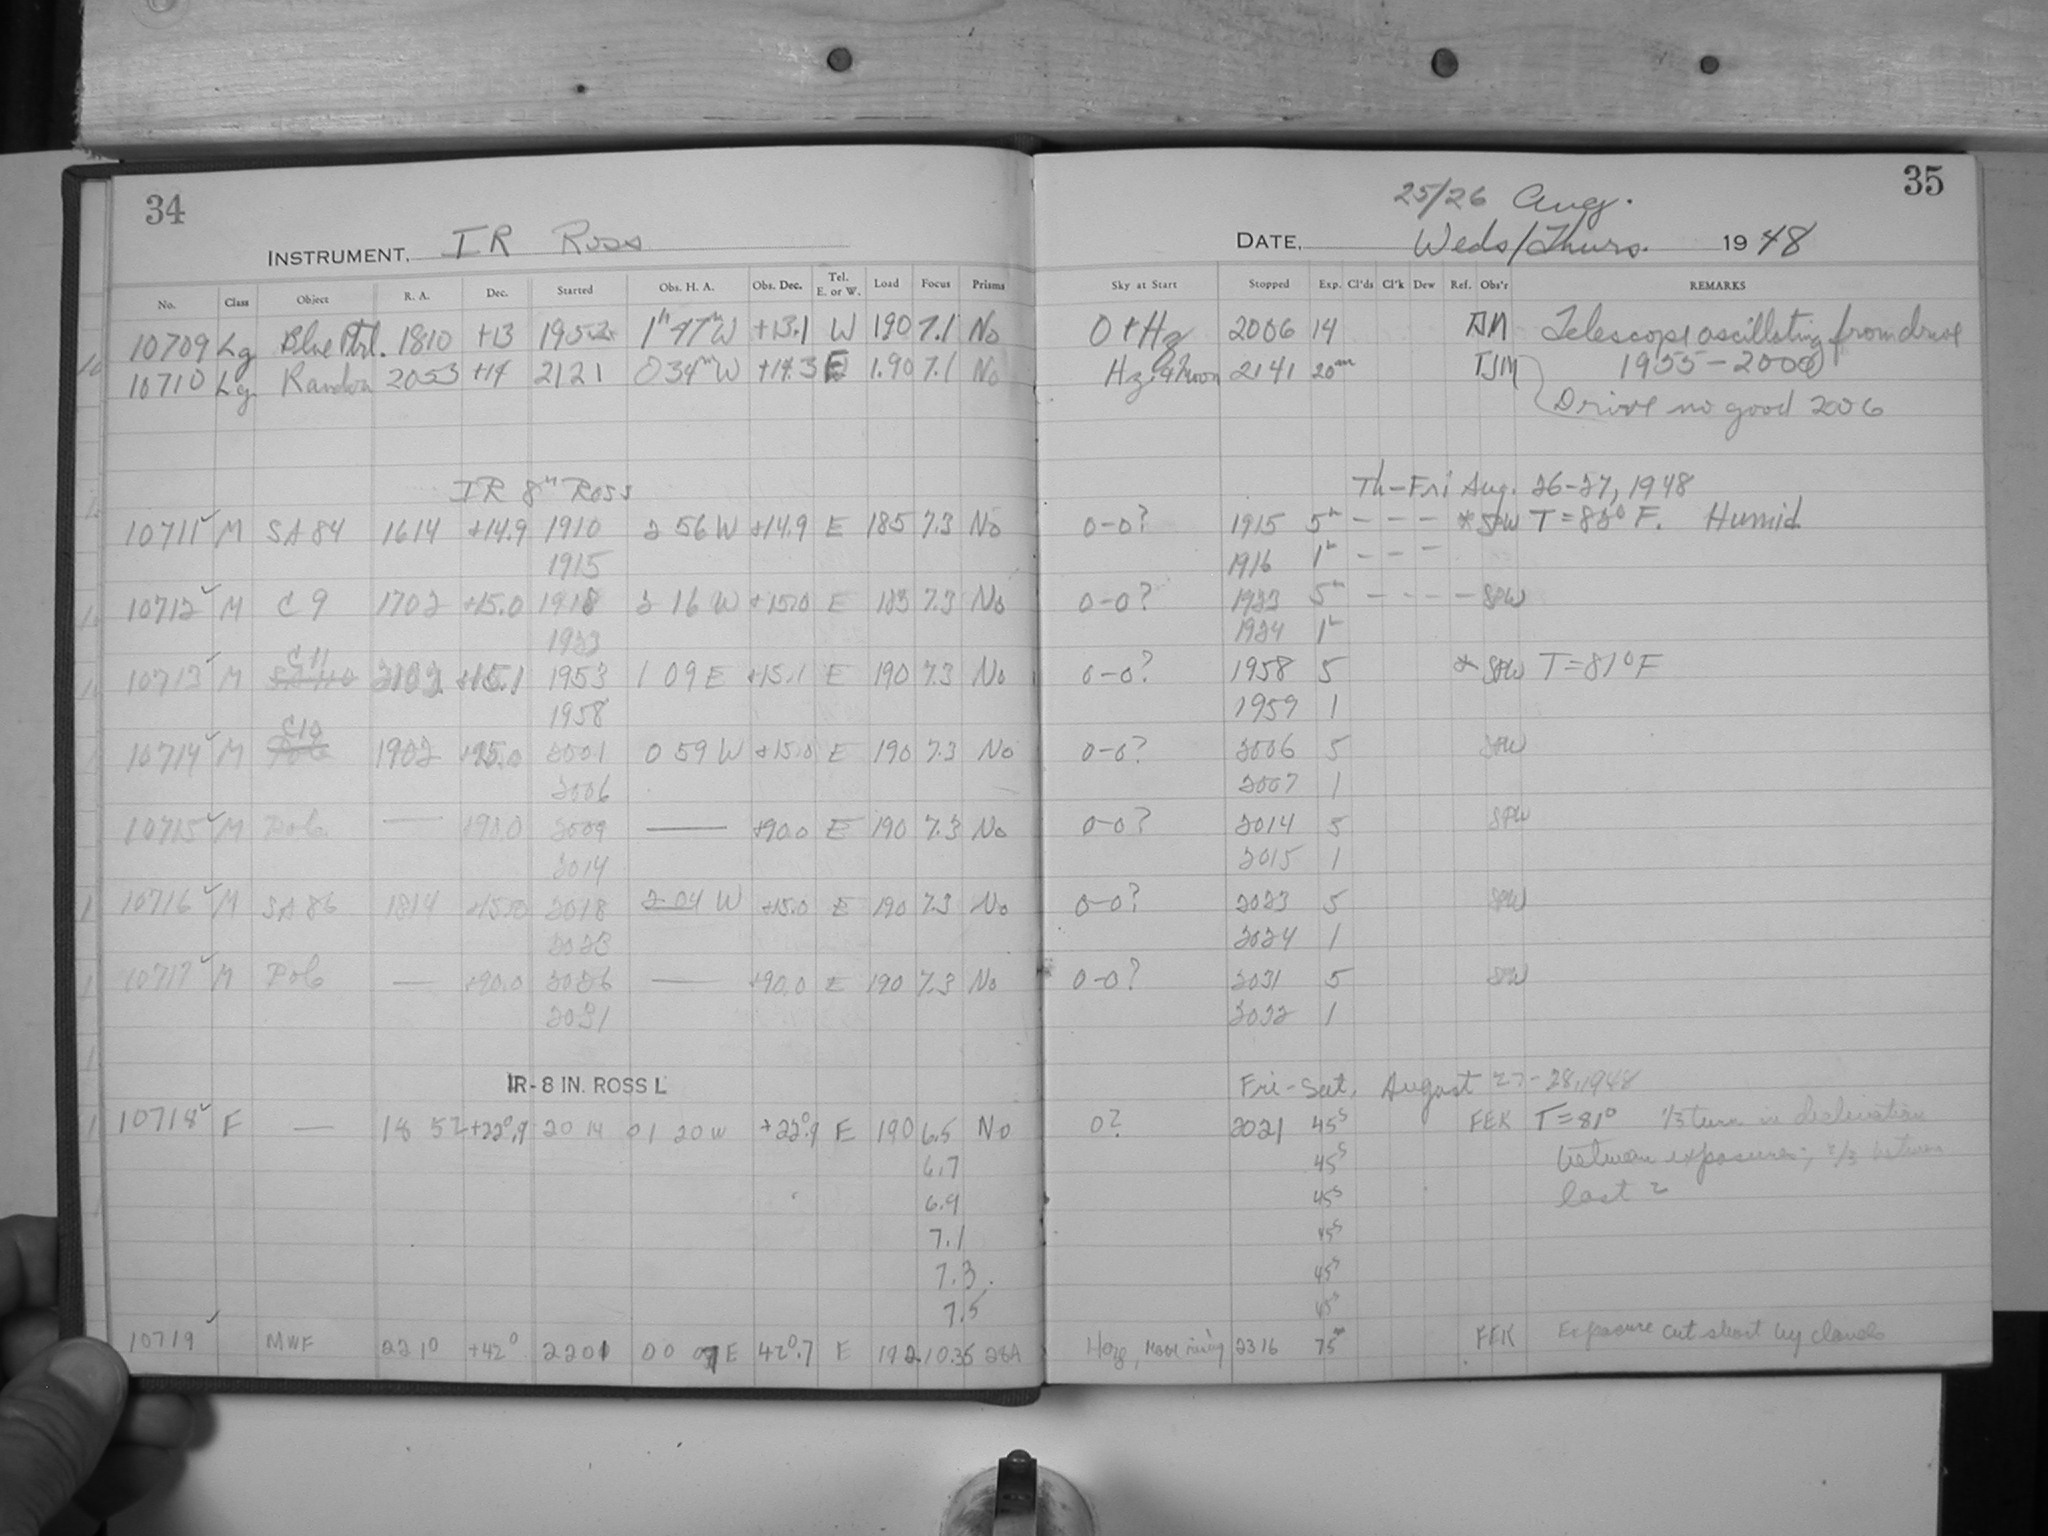 34
INSTRUMENT, IR Ross
No. Class Object R. A. Dec. Started Obs. H. A. Obs. Dec. Tel. E. or W. Load Focus Prisms
10709 Lg 1810 +13 1952 1h 47m W +13.1 W 190 7.1 No
10710 Lg Random 2053 +14 2121 0 34m W +14.3 E 1.90 7.1 No
IR 8" Ross
10711 ✓ M SA 84 1614 +14.9 1910 2 56 W +14.9 E 185 7.3 No
1915
10712 ✓ M C 9 1702 +15.0 1918 2 16 W +15.0 E 185 7.3 No
1923
C 11
10713 ✓ M 2102 +15.1 1953 1 09 E +15.1 E 190 7.3 No
1958
C10
10714 ✓ M Pole 1902 +15.0 2001 0 59 W +15.0 E 190 7.3 No
2006
10715 ✓ M Pole — +90.0 2009 — +90.0 E 190 7.3 No
2014
10716 ✓ M SA 86 1814 +15.0 2018 2 04 W +15.0 E 190 7.3 No
2023
10717 ✓ M Pole — +90.0 2026 — +90.0 E 190 7.3 No
2031
IR-8 IN. ROSS L
10718 ✓ F — 18 52 +22°.9 20 14 01 20 W +22°.9 E 190 6.5 No
6.7
6.9
7.1
7.3
7.5
10719 ✓ MWF 22 10 +42° 2201 00 07 E 42°.7 E 192 10.35 28A
35
25/26 Aug.
DATE, Weds/Thurs. 19 48
Sky at Start Stopped Exp. Cl'ds Cl'k Dew Ref. Obs'r REMARKS
0 + Hz 2006 14 TJM Telescope oscillating from drive
Hz, Moon 2141 20m TJM 1955-2000
Drive no good 2006
Th-Fri Aug. 26-27, 1948
0-0? 1915 5m - - - * SPW T = 85° F. Humid
1916 1m - - -
0-0? 1923 5m - - - - SPW
1924 1m
0-0? 1958 5 * SPW T = 81° F
1959 1
0-0? 2006 5 SPW
2007 1
0-0? 2014 5 SPW
2015 1
0-0? 2023 5 SPW
2024 1
0-0? 2031 5 SPW
2032 1
Fri-Sat, August 27-28, 1948
0? 2021 45s FEK T = 81° 1/3 turn in declination
45s between exposures; 2/3 between
45s last 2
45s
45s
45s
Haze, moon rising 2316 75m FEK Exposure cut short by clouds